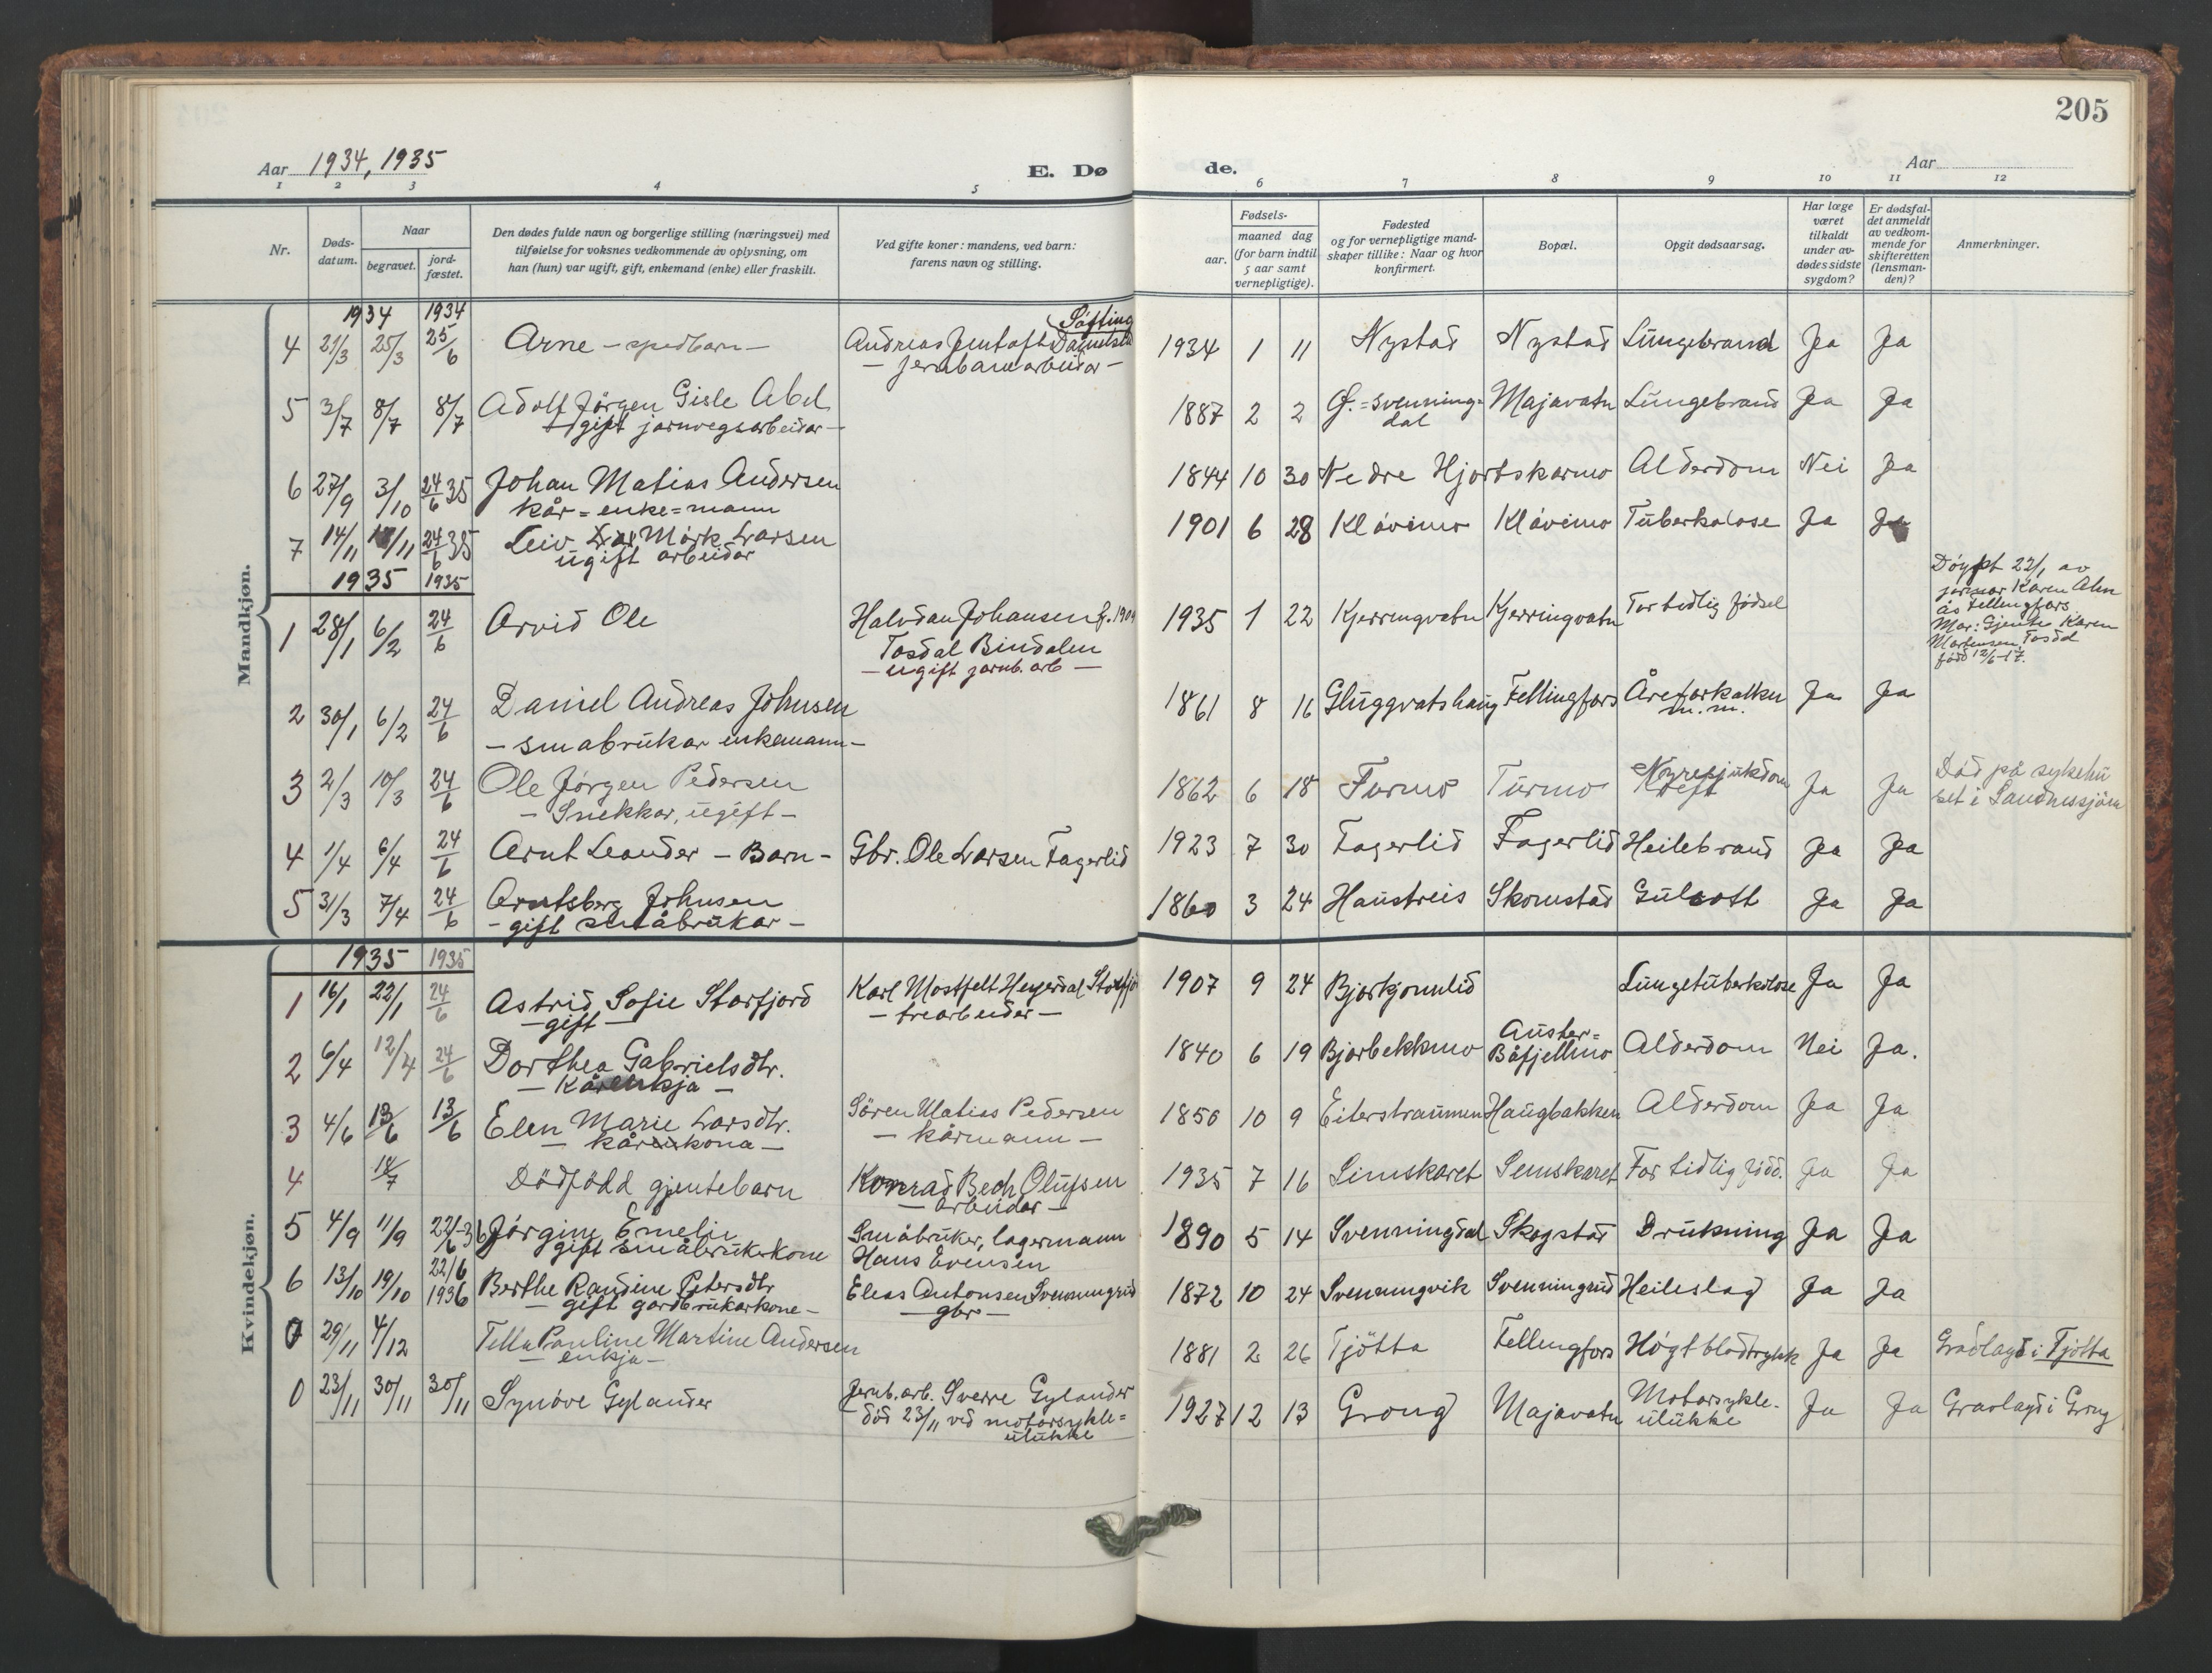 205
Aar 1934, 1935
E. Døde.
Aar
1 2 3 4 5 6 7 8 9 10 11 12
Nr.
Døds-datum.
Naar
begravet.
jord-fæstet.
Den dødes fulde navn og borgerlige stilling (næringsvei) med
tilføielse for voksnes vedkommende av oplysning, om
han (hun) var ugift, gift, enkemand (enke) eller fraskilt.
Ved gifte koner: mandens, ved barn:
farens navn og stilling.
Fødsels-
aar.
maaned dag
(for barn indtil
5 aar samt
vernepligtige).
Fødested
og for vernepligtige mand-
skaper tillike: Naar og hvor
konfirmert.
Bopæl.
Opgit dødsaarsag.
Har læge
været
tilkaldt
under av-
dødes sidste
sygdom?
Er dødsfal-
det anmeldt
av vedkom-
mende for
skifteretten
(lensman-
den)?
Anmerkninger.
Mandkjøn.
1934 1934
4 21/3 25/3 25/6 Arne - spedbarn - Andreas Jentoft 1934 1 11 Nystad Nystad Lungebrand Ja Ja
Søfting
- jernbanearbeidar -
5 3/7 8/7 8/7 Adolf Jörgen Gisle Abel 1887 2 2 Ø.=Svenning= Majavatn Lungebrand Ja Ja
gift jarnvegsarbeidar - dal
6 27/9 3/10 24/6 35 Johan Matias Andersen 1844 10 30 Nedre Hjortskarmo Alderdom Nei Ja
kår=enke=mann
7 14/11 /11 24/6 35 Leiv Mörk Larsen 1901 6 28 Klåvimo Klåvimo Tuberkolose Ja Ja
ugift arbeidar
1935 1935
1 28/1 6/2 24/6 Arvid Ole Halvdan Johansen f. 1904 1935 1 22 Kjerringvatn Kjerringvatn For tidlig fødsel
Tosdal Bindalen
- ugift jarnb. arb -
Döypt 22/1 av
jormor Karen Aln
ås Fellingfors
Mor: Gjente Karen
Martensen Tosdal
född 12/6-17.
2 30/1 6/2 24/6 Daniel Andreas Johnsen 1861 8 16 Gluggvatshaug Fellingfors Åreforkalkn Ja Ja
- småbrukar enkemann - m.m.
3 2/3 10/3 24/6 Ole Jørgen Pedersen 1862 6 18 Furmo Turmo Nyresjukdom Ja Ja Död på sykehu
- Snekkar, ugift - Kreft set i Sandnessjöen
4 1/4 6/4 24/6 Arnt Leander - Barn - Gbr. Ole Larsen Fagerlid 1923 7 30 Fagerlid Fagerlid Heilebrand Ja Ja
5 31/3 7/4 24/6 Arntsberg Johnsen 1860 3 24 Haustreis Skomstad Gulsott Ja Ja
- gift småbrukar -
Kvindekjøn.
1935 1935
1 16/1 22/1 24/6 Astrid Sofie Storfjord Karl Mostfelt Heyerdal Storfjo 1907 9 24 Bjorkjonnlid Lungetuberkolose Ja Ja
- gift - - trearbeider -
2 6/4 12/4 24/6 Dorthea Gabrielsdtr. 1840 6 19 Bjorbekkmo Auster= Båfjellmo Alderdom Nei Ja.
- Kårenkja -
3 4/6 13/6 13/6 Elen Marie Larsdtr. Sören Matias Pedersen 1850 10 9 Eiterstraumen Haugbakken Alderdom Ja Ja
- kårkona - - kårmann -
4 18/7 Dödfödd gjentebarn Konrad Bech Olufsen 1935 7 16 Simskaret Simskaret For tidlig född. Ja Ja
- arbeidar -
5 4/9 11/9 22/6-36 Jörgine Emelie Småbruker, lagermann 1890 5 14 Svenningdal Skogstad Drukning Ja Ja
gift småbrukerkone Hans Evensen
6 13/10 19/10 22/6 1936 Berthe Randine Petersdtr Elias Antonsen Svenningrud 1872 10 24 Svenningvik Svenningrud Heileslag Ja Ja
- gift gardbrukarkone - - gbr -
0 29/11 4/12 Tella Pauline Martine Andersen 1881 2 26 Tjötta Fellingfors Högt blodtrykk Ja Ja Gravlagd i Tjötta
- enkja -
0 23/11 30/11 30/11 Synöve Gylander Jernb. arb. Sverre Gylander 1927 12 13 Grong Majavatn Motorsykle- Ja Ja Gravlagd i Grong
död 23/11 ved motorsykle= ulukke
ulukke